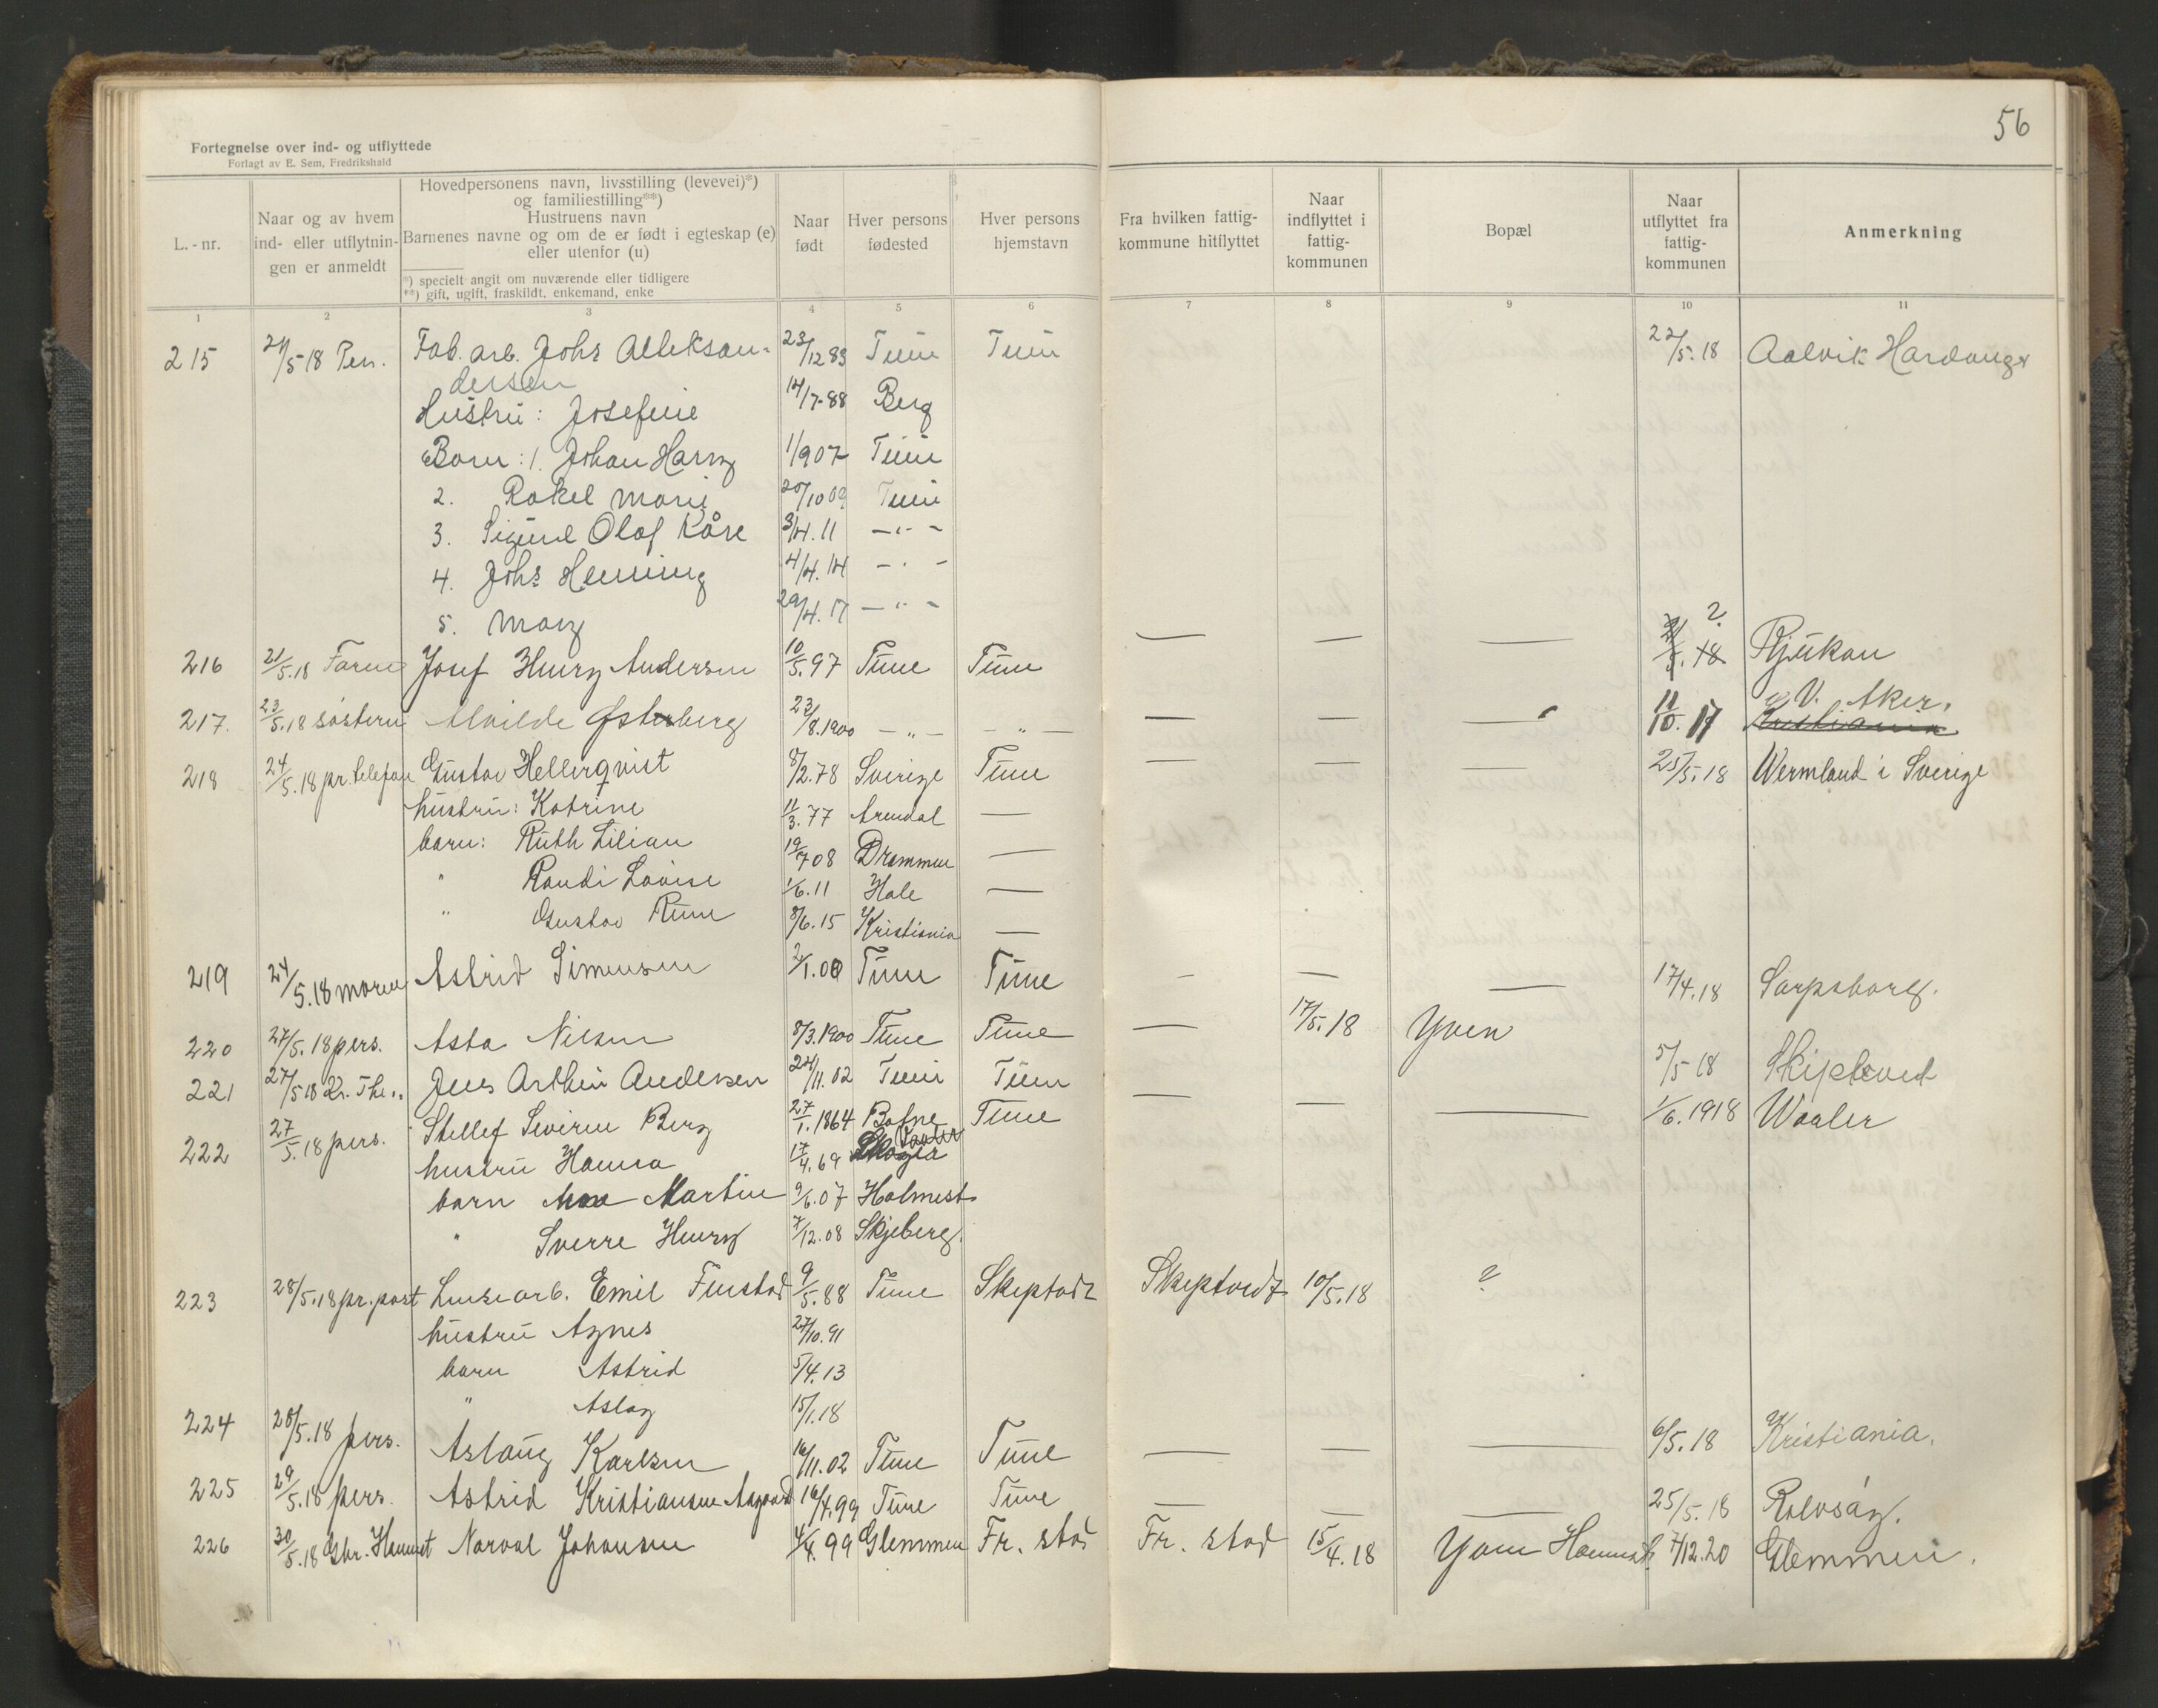 56
Fortegnelse over ind- og utflyttede
Forlagt av E. Sem, Fredrikshald
L.-nr.
Naar og av hvem ind- eller utflytnin-gen er anmeldt
Hovedpersonens navn, livsstilling (levevei)*)
og familiestilling**)
Hustruens navn
Barnenes navne og om de er født i egteskap (e)
eller utenfor (u)
*) specielt angit om nuværende eller tidligere
**) gift, ugift, fraskildt, enkemand, enke
Naar født
Hver persons fødested
Hver persons hjemstavn
Fra hvilken fattig-kommune hitflyttet
Naar indflyttet i fattig-kommunen
Bopæl
Naar utflyttet fra fattig-kommunen
Anmerkning
1 2 3 4 5 6 7 8 9 10 11
215 21/5-18 Pers. Fab. arb. Johs Alleksan- 23/12 83 Tune Tune 22/5.18 Aalvik Hardanger
dersen
Hustru: Josefine 14/7-88 Berg
Born: 1. Johan Harry 1/9 07 Tune
2. Rakel Marie 20/10 09 Tune
3. Sigurd Olaf Kåre 3/4.11 — " —
4. Johs Henning 4/4.14 — " —
5. Mary 29/4.17 — " —
216 21/5.18 Faren Josef Henry Andersen 10/5.97 Tune Tune — — — ? Rjukan
217. 23/5.18 søsteren Alvilde Østerberg 23/8.1900 — " — — " — — — — 11/10.17 V. Aker. Kristiania
218 24/5.18 pr. telefon Gustav Hellerqvist 8/2.78 Sverige Tune — — — 25/5.18 Wermland i Sverige
hustru: Katrine 11/3.77 Arendal —
barn: Ruth Lilian 19/7 08 Drammen —
" Randi Lovise 1/6.11 Hole —
" Gustav Rune 8/6.15 Kristiania —
219 24/5.18 moren Astrid Simensen 2/1.00 Tune Tune — — — 17/4.18 Sarpsborg.
220 27/5.18 pers. Asta Nilsen 8/3.1900 Tune Tune — 17/5.18 Yven
221 27/5 18 Kr. The.. Jens Arthur Andersen 24/11.02 Tune Tune 5/5 18 Skiptved
222 27/5.18 pers. Stellef Severin Berg 27/1.1864 Botne Tune — — — 1/6.1918 Waaler
hustru Hanna 17/4.69 Vaaler
barn Martin 9/6.07 Holmest
" Sverre Henry 7/12.08 Skjeberg.
223 28/5.18 pr. post Lensearb. Emil Finstad 9/5.88 Tune Skeptvedt Skeptvedt 10/5.18 ?
hustru Agnes 27/10.91
barn Astrid 5/4.13
" Aslag 15/1.18
224 28/5.18 pers. Aslaug Karlsen 16/11.02 Tune Tune — — — 6/5.18 Kristiania.
225 29/5.18 pers. Astrid Kristiansen Aagaard 16/4.99 Tune Tune — — — 25/5.18 Rolvsøy.
226 30/5.18 Gbr. Hennset Narval Johansen 4/4.99 Glemmen Fr. stad Fr. stad 15/4.18 7/12.20 Glemmen.